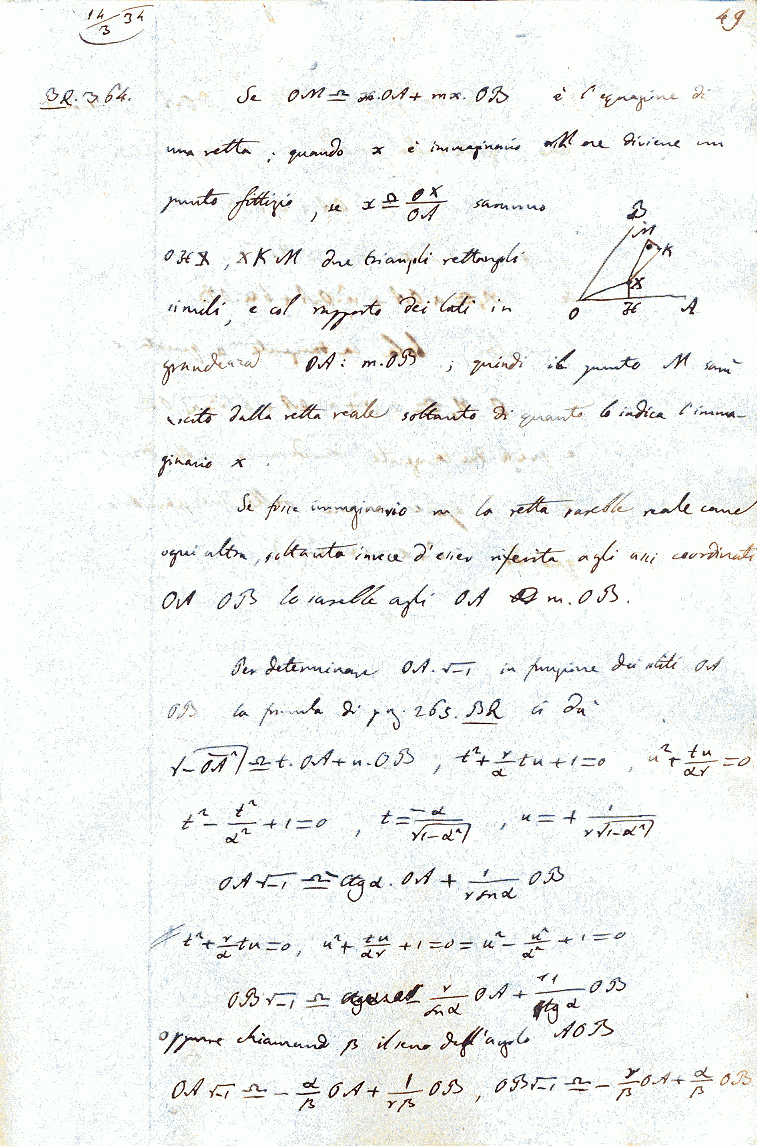 14/3 34
49
BR. 3. 64.
Se OM ≏ x.OA + mx.OB è l'equazione di
una retta; quando x è immaginario M ne diviene un
punto fittizio, se x ≏ OX/OA saranno
OHX, XKM due triangoli rettangoli
simili, e col rapporto dei lati in
grandezza OA : m.OB ; quindi il punto M sarà
uscito dalla retta reale soltanto di quanto lo indica l'imma-
ginario x.
B
M
K
X
O H A
Se fosse immaginario m la retta sarebbe reale come
ogni altra, soltanto invece d'esser riferita agli assi coordinati
OA OB lo sarebbe agli OA m.OB.
Per determinare OA.√-1 in funzione dei stili OA
OB la formula di pag. 265. BR ci dà
√-OA² ≏ t.OA + u.OB , t² + r/α tu + 1 = 0 , u² + tu/αr = 0
t² - t²/α² + 1 = 0 , t = -α/√(1-α²) , u = + 1/r√(1-α²)
OA√-1 ≏ - ctgα . OA + 1/r senα OB
t² + r/α tu = 0, u² + tu/αr + 1 = 0 = u² - u²/α² + 1 = 0
OB√-1 ≏ - r/senα OA + 1/tgα OB
oppure chiamand β il seno dell'angolo AOB
OA√-1 ≏ - α/β OA + 1/rβ OB , OB√-1 ≏ - r/β OA + α/β OB